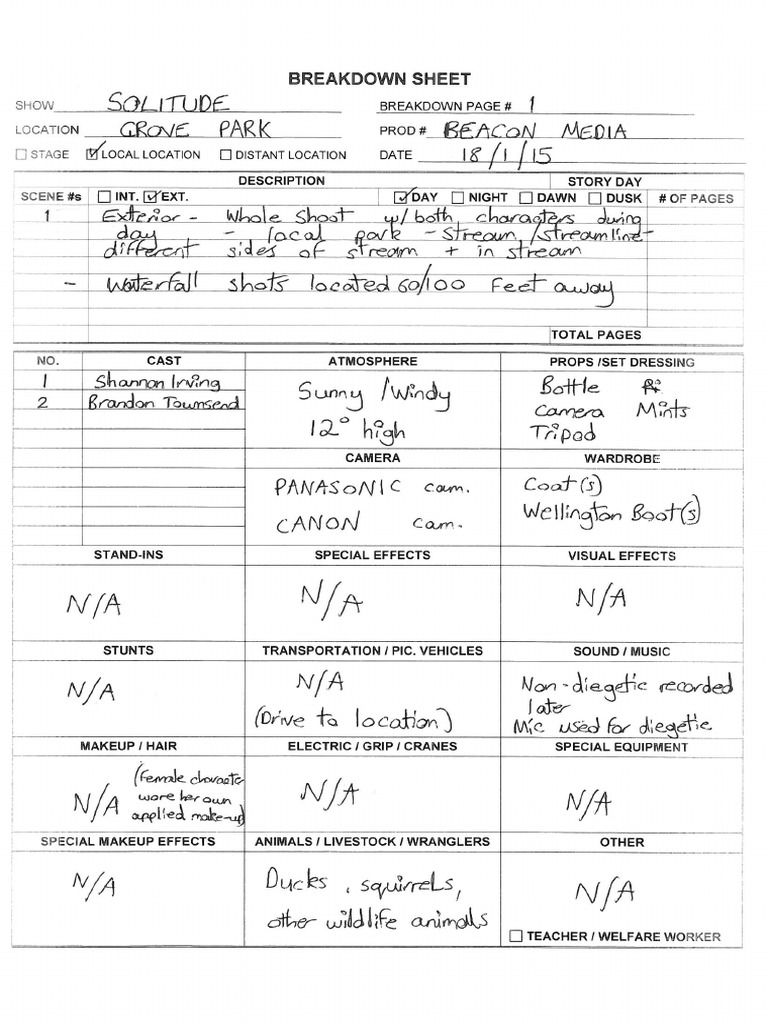 BREAKDOWN SHEET
SHOW SOLITUDE BREAKDOWN PAGE # 1
LOCATION GROVE PARK PROD # BEACON MEDIA
STAGE LOCAL LOCATION DISTANT LOCATION DATE 18/1/15
DESCRIPTION STORY DAY
SCENE #s INT. EXT. DAY NIGHT DAWN DUSK # OF PAGES
1 Exterior - Whole Shoot w/both characters during
day - local park - Stream/streamline-
different sides of stream + in stream
- Waterfall shots located 60/100 Feet away
TOTAL PAGES
NO. CAST ATMOSPHERE PROPS /SET DRESSING
1 Shannon Irving Sunny /Windy Bottle
2 Brandon Townsend 12° high Camera Mints
Tripod
CAMERA WARDROBE
PANASONIC cam. Coat(s)
CANON cam. Wellington Boot(s)
STAND-INS SPECIAL EFFECTS VISUAL EFFECTS
N/A N/A N/A
STUNTS TRANSPORTATION / PIC. VEHICLES SOUND / MUSIC
N/A N/A Non-diegetic recorded
(Drive to location) later
Mic used for diegetic
MAKEUP / HAIR ELECTRIC / GRIP / CRANES SPECIAL EQUIPMENT
N/A (Female character N/A N/A
wore her own
applied make-up)
SPECIAL MAKEUP EFFECTS ANIMALS / LIVESTOCK / WRANGLERS OTHER
N/A Ducks, squirrels, N/A
other wildlife animals
TEACHER / WELFARE WORKER